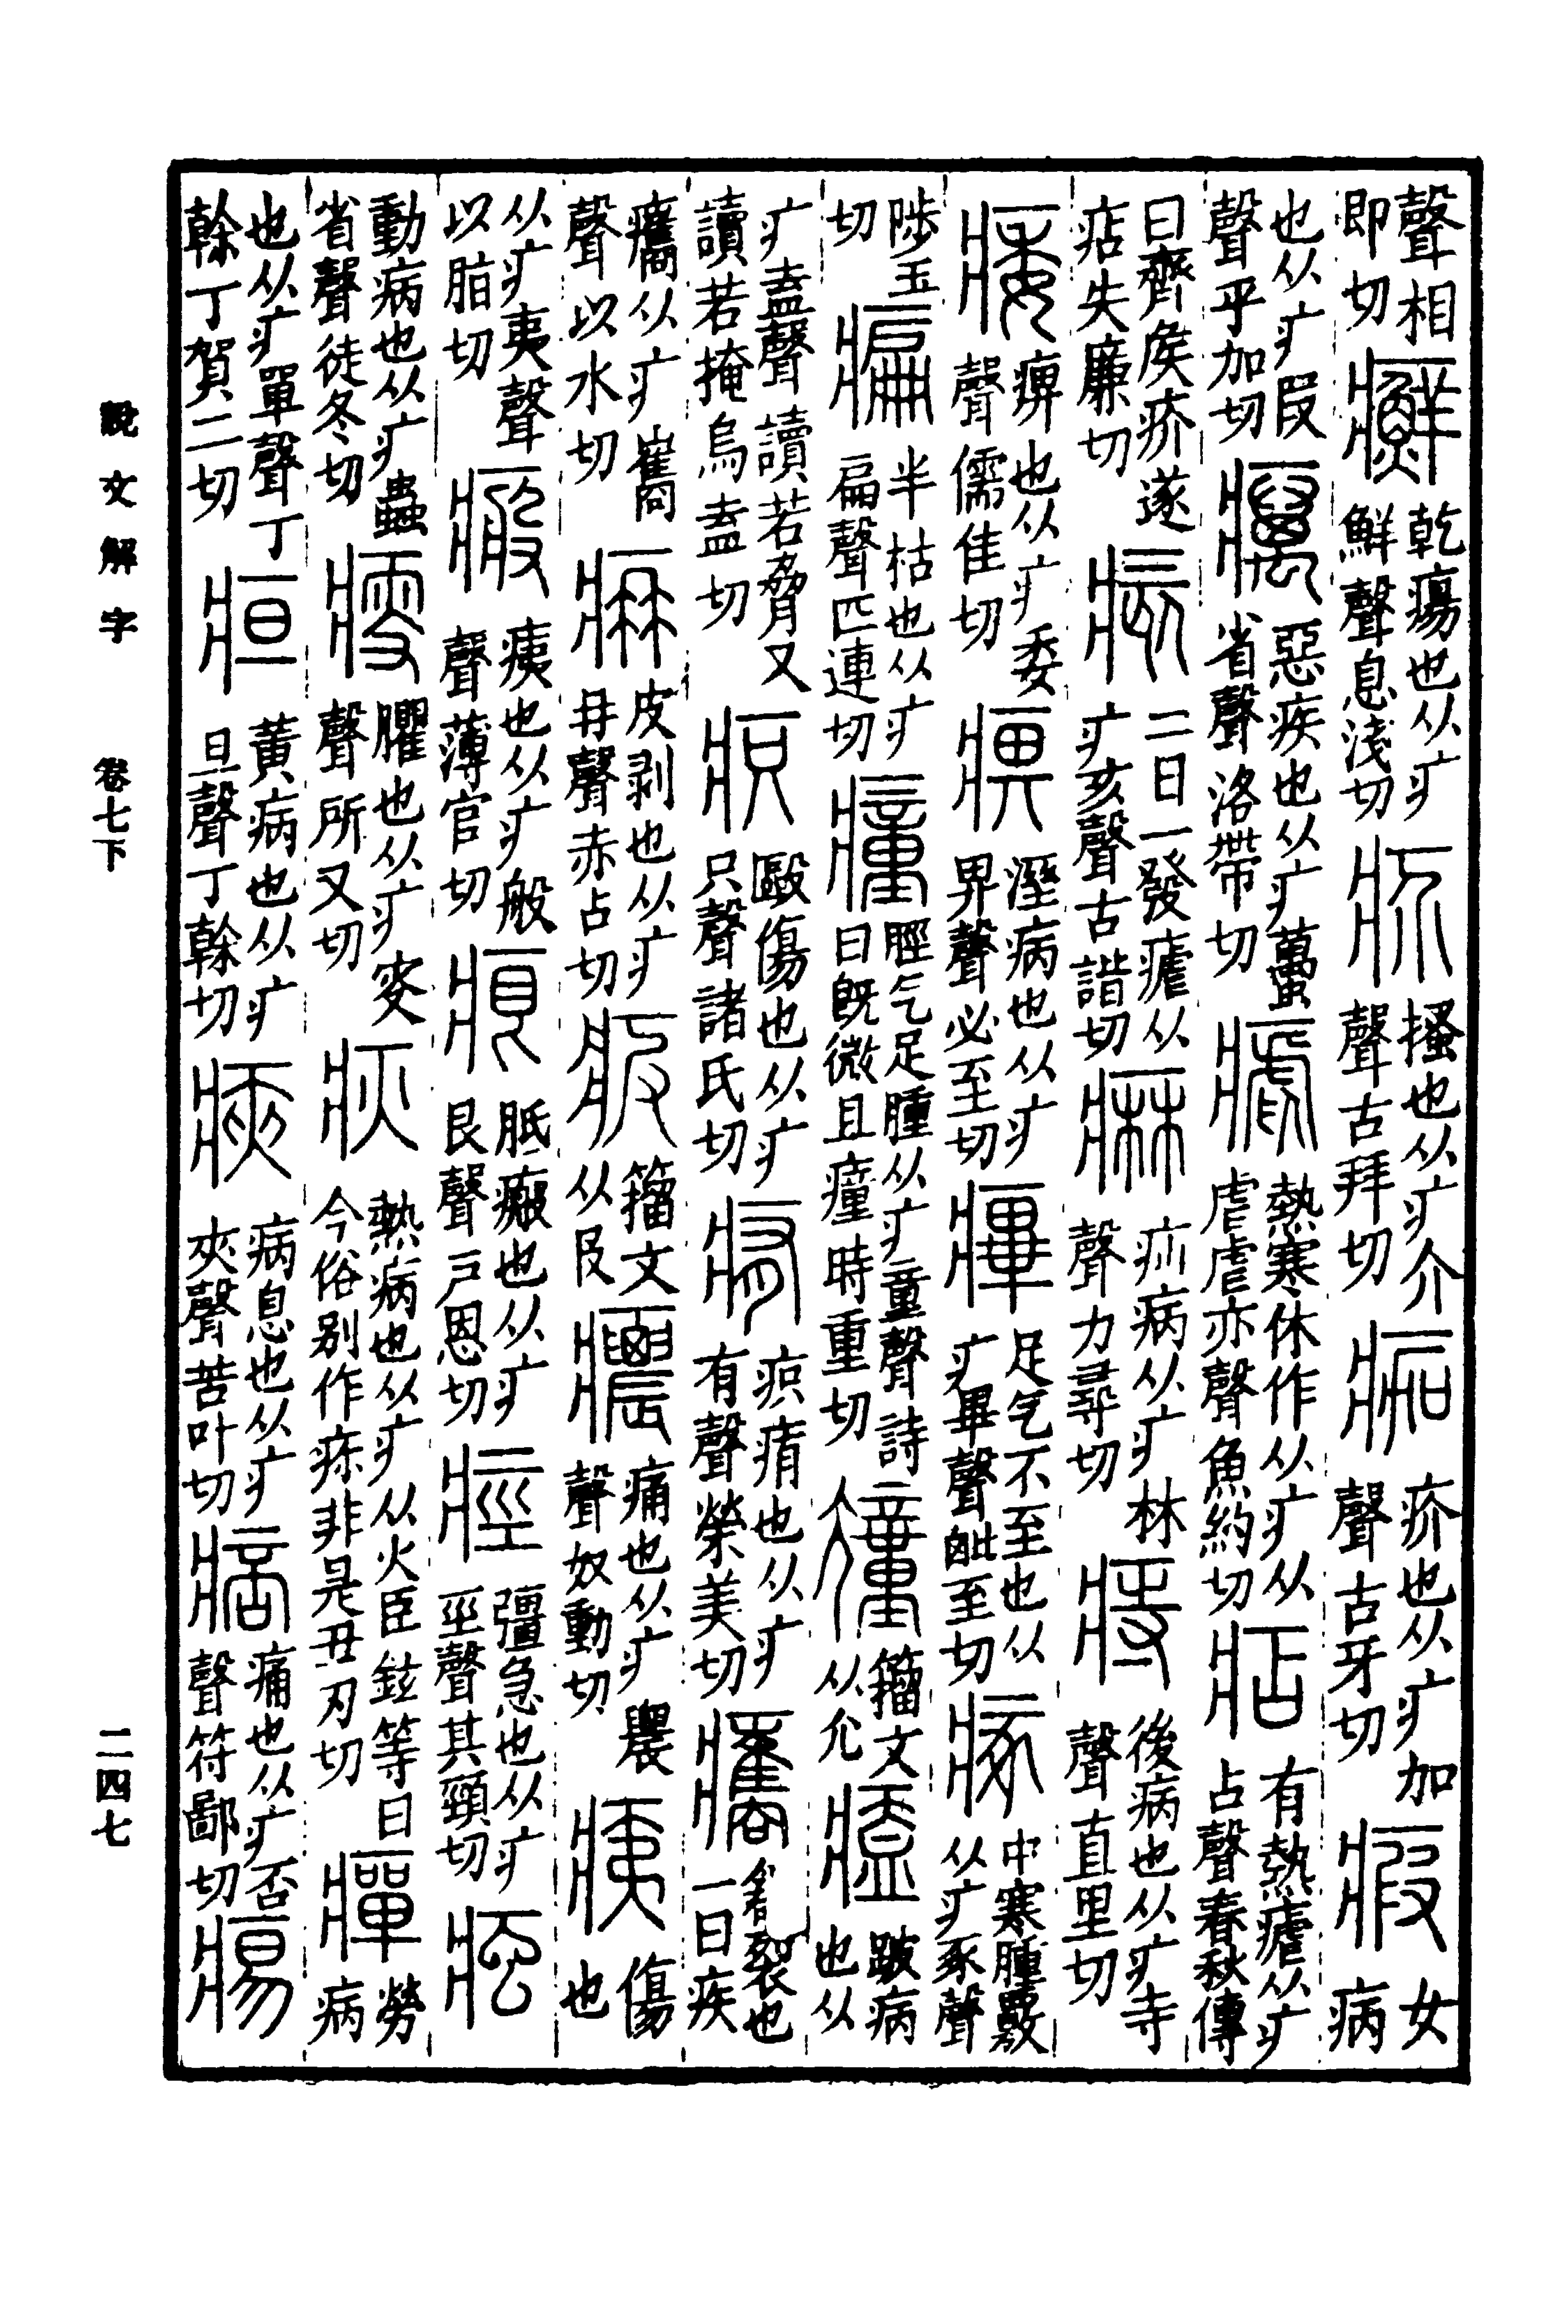 聲相即切 癬 乾瘍也从疒鮮聲息淺切 疥 搔也从疒介聲古拜切 痂 疥也从疒加聲古牙切 瘕 女病
也从疒叚聲乎加切 癘 惡疾也从疒蠆省聲洛帶切 瘧 熱寒休作从疒从虐虐亦聲魚約切 痁 有熱瘧从疒占聲春秋傳
曰齊矦疥遂痁失廉切 痎 二日一發瘧从疒亥聲古諧切 痳 疝病从疒林聲力尋切 痔 後病也从疒寺聲直里切
痿 痹也从疒委聲儒佳切 痹 溼病也从疒畀聲必至切 㿙 足气不至也从疒畢聲毗至切 瘃 中寒腫覈从疒豖聲
陟玉切 㾫 半枯也从疒扁聲匹連切 瘇 脛气足腫从疒童聲詩曰旣微且瘇時重切 籒文从允 跛病也从
疒盍聲讀若脅又讀若掩烏盍切 疻 毆傷也从疒只聲諸氏切 痏 疻痏也从疒有聲榮美切 創裂也一曰疾
从疒巂聲以水切 皮剥也从疒冄聲赤占切 籒文从𠬝 癑 痛也从疒農聲奴動切 痍 傷也
从疒夷聲以脂切 瘢 痍也从疒般聲薄官切 痕 胝瘢也从疒艮聲戸恩切 痙 彊急也从疒巠聲其頸切 痋
動病也从疒蟲省聲徒冬切 瘦 臞也从疒叜聲所又切 疢 熱病也从疒从火臣鉉等曰今俗别作疹非是丑刃切 癉 勞病
也从疒單聲丁榦丁賀二切 疸 黃病也从疒旦聲丁榦切 㾜 病息也从疒夾聲苦叶切 痞 痛也从疒否聲符鄙切 痬
說文解字 卷七下 二四七